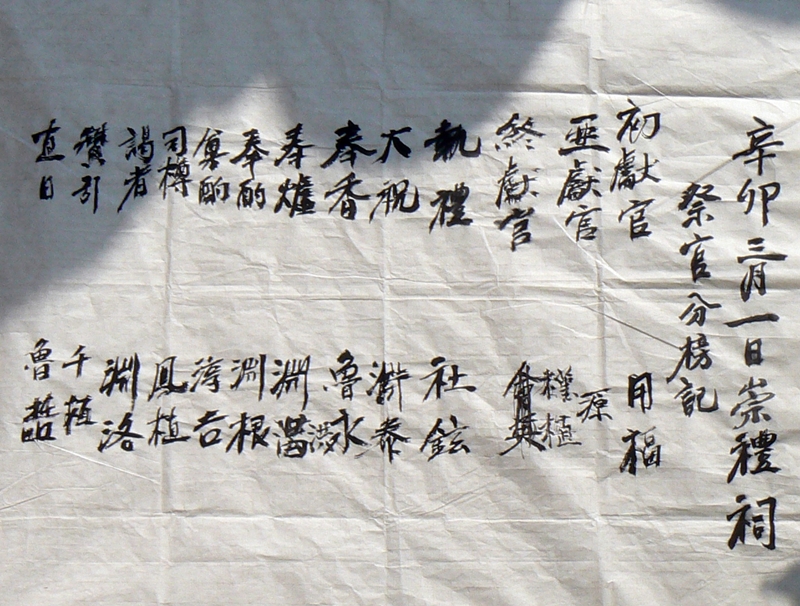 辛卯三月一日崇禮祠
祭官分榜記
初獻官 用福
亞獻官 源
終獻官 權植
執禮 社鉉
大祝 泰
奉香 魯永
奉爐 淵
奉酌 淵根
奠酌 淳吉
司樽 鳳植
謁者 淵洛
贊引 千植
直日 魯喆